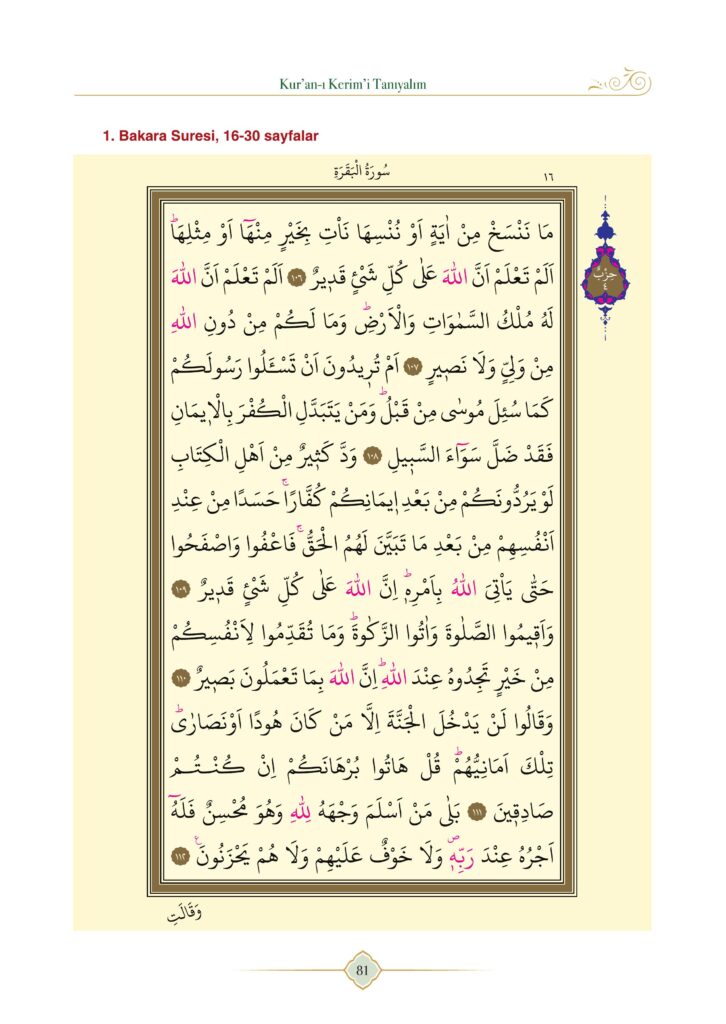 Kur'an-ı Kerim'i Tanıyalım
1. Bakara Suresi, 16-30 sayfalar
سُورَةُ الْبَقَرَةِ
١٦
حِزْبٌ
٤
مَا نَنْسَخْ مِنْ اٰيَةٍ اَوْ نُنْسِهَا نَأْتِ بِخَيْرٍ مِنْهَٓا اَوْ مِثْلِهَاۜ
اَلَمْ تَعْلَمْ اَنَّ اللّٰهَ عَلٰى كُلِّ شَيْءٍ قَد۪يرٌ ﴿١٠٦﴾ اَلَمْ تَعْلَمْ اَنَّ اللّٰهَ
لَهُ مُلْكُ السَّمٰوَاتِ وَالْاَرْضِۜ وَمَا لَكُمْ مِنْ دُونِ اللّٰهِ
مِنْ وَلِيٍّ وَلَا نَص۪يرٍ ﴿١٠٧﴾ اَمْ تُر۪يدُونَ اَنْ تَسْـَٔلُوا رَسُولَكُمْ
كَمَا سُئِلَ مُوسٰى مِنْ قَبْلُۜ وَمَنْ يَتَبَدَّلِ الْكُفْرَ بِالْا۪يمَانِ
فَقَدْ ضَلَّ سَوَٓاءَ السَّب۪يلِ ﴿١٠٨﴾ وَدَّ كَث۪يرٌ مِنْ اَهْلِ الْكِتَابِ
لَوْ يَرُدُّونَكُمْ مِنْ بَعْدِ ا۪يمَانِكُمْ كُفَّارًاۚ حَسَدًا مِنْ عِنْدِ
اَنْفُسِهِمْ مِنْ بَعْدِ مَا تَبَيَّنَ لَهُمُ الْحَقُّۚ فَاعْفُوا وَاصْفَحُوا
حَتّٰى يَأْتِيَ اللّٰهُ بِاَمْرِه۪ۜ اِنَّ اللّٰهَ عَلٰى كُلِّ شَيْءٍ قَد۪يرٌ ﴿١٠٩﴾
وَاَق۪يمُوا الصَّلٰوةَ وَاٰتُوا الزَّكٰوةَۜ وَمَا تُقَدِّمُوا لِاَنْفُسِكُمْ
مِنْ خَيْرٍ تَجِدُوهُ عِنْدَ اللّٰهِۜ اِنَّ اللّٰهَ بِمَا تَعْمَلُونَ بَص۪يرٌ ﴿١١٠﴾
وَقَالُوا لَنْ يَدْخُلَ الْجَنَّةَ اِلَّا مَنْ كَانَ هُودًا اَوْ نَصَارٰىۜ
تِلْكَ اَمَانِيُّهُمْۜ قُلْ هَاتُوا بُرْهَانَكُمْ اِنْ كُنْتُمْ
صَادِق۪ينَ ﴿١١١﴾ بَلٰى مَنْ اَسْلَمَ وَجْهَهُ لِلّٰهِ وَهُوَ مُحْسِنٌ فَلَهُٓ
اَجْرُهُ عِنْدَ رَبِّه۪ۖ وَلَا خَوْفٌ عَلَيْهِمْ وَلَا هُمْ يَحْزَنُونَ۟ ﴿١١٢﴾
وَقَالَتِ
81